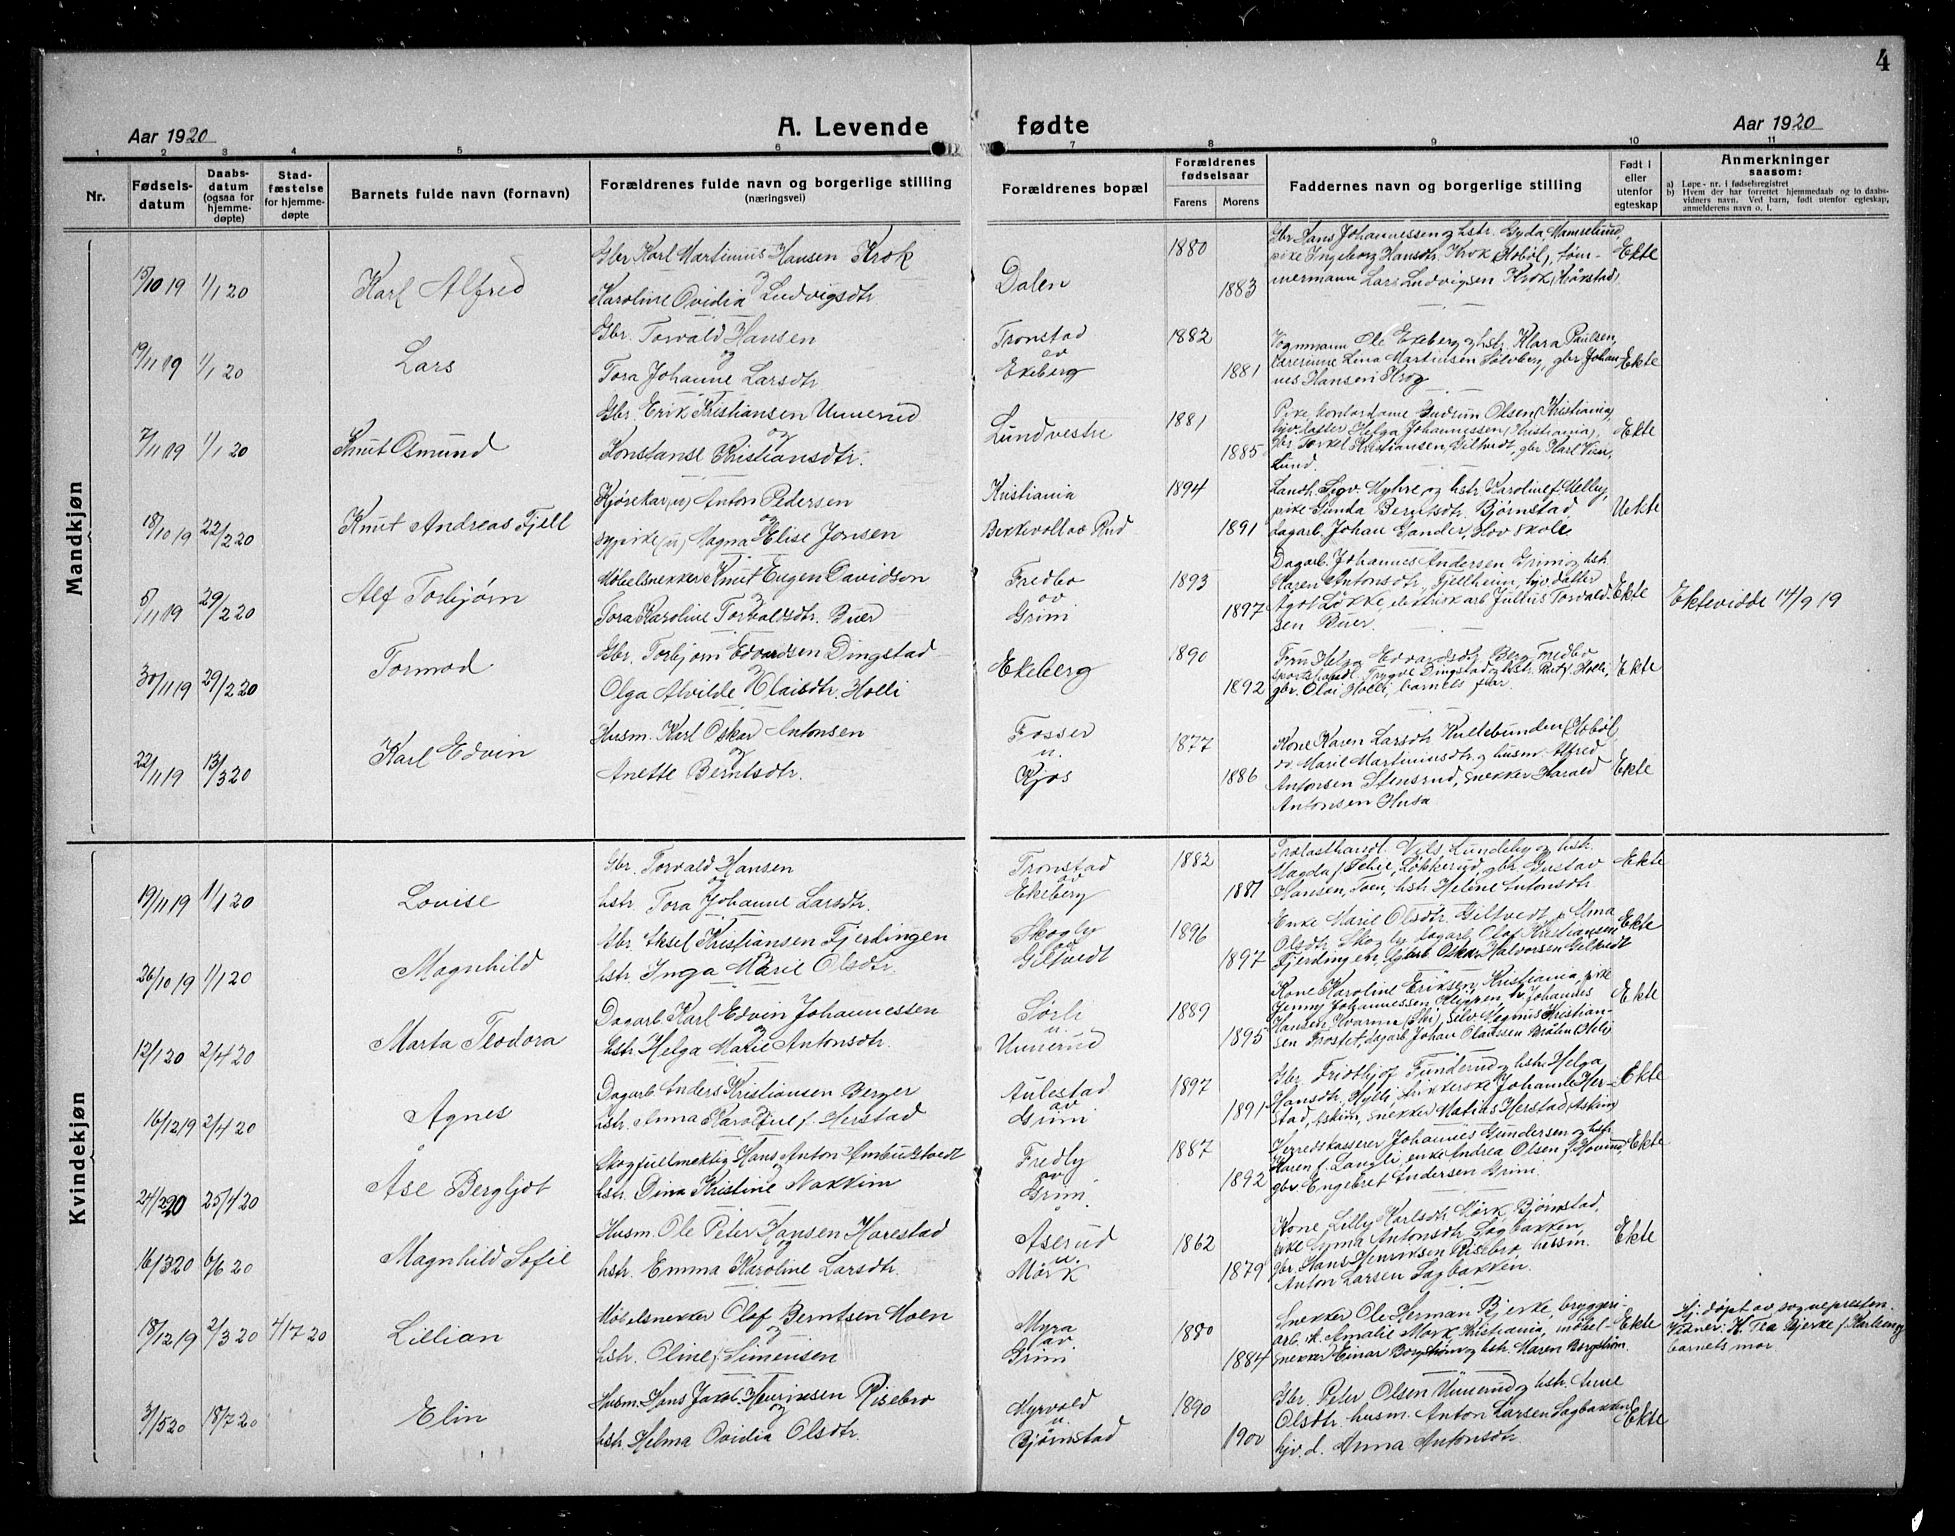 4
Aar 1920
A. Levende fødte
Aar 1920
1 2 3 4 5 6 7 8 9 10 11
Nr.
Fødselsdatum
Daabsdatum (ogsaa for hjemmedøpte)
Stadfæstelse for hjemmedøpte
Barnets fulde navn (fornavn)
Forældrenes fulde navn og borgerlige stilling (næringsvei)
Forældrenes bopæl
Forældrenes fødselsaar
Farens Morens
Faddernes navn og borgerlige stilling
Født i eller utenfor egteskap
Anmerkninger saasom:
a) Løpe-nr. i fødselsregistret
b) Hvem der har forrettet hjemmedaab og to daabsvidners navn. Ved barn, født utenfor egteskap, anmelderens navn o. l.
Mandkjøn
15/10 19 1/1 20
Karl Alfred
Gbr Karl Martinius Hansen Krok
og
Karoline Ovidia Ludvigsdtr
Dalen
1880
1883
Gbr Hans Johannessen og hstr. Gyda Mamselund,
pike Ingeborg Hansdtr. Krok (Hobøl), tøm-
mermann Lars Ludvigsen Krok (Kråkstad)
Ekte
19/11 19 1/1 20
Lars
Gbr. Torvald Hansen
og
Tora Johanne Larsdtr
Tronstad
av
Ekeberg
1882
1881
Vognmann Ole Ekeberg og hstr. Klara Paulsen,
lærerinne Lina Martinsen Sølvberg, gbr Johan-
nes Hansen Krog
Ekte
7/11 19 1/1 20
Knut Osmund
Gbr. Erik Kristiansen Unnerud
og
Konstanse Kristiansdtr.
Lundvestre
1881
1885
Pike, kontordame Gudrun Olsen (Kristiania,
hjv. datter Helga Johannessen (Kristiania),
gbr Torkel Kristiansen Giltvedt, gbr Karl
Lund.
Ekte
18/10 19 22/2 20
Knut Andreas Fjell
Kjørekar (u) Anton Pedersen
og
sypike (u) Magna Elise Jonsen
Kristiania
Bekkevoll av Rud
1894
1891
Landh. Sigv. Myhre og hstr Karoline f. Melby,
pike Gunda Berntsdtr. Bjørnstad
dagarb. Johan Gander, Hov skole
Uekte
5/11 19 29/2 20
Alf Torbjørn
Møbelsnekker Knut Eugen Davidson
og
Tora Karoline Torvaldsdtr. Buer
Fredbo
av
Grimi
1893
1897
Dagarb. Johannes Andersen Grimi og hstr
Karen Antonsdtr. Fjellheim, hjv. datter
Ågot Løkke, elektrisk arb Julius Torvald-
sen Buer.
Ekte
Ektevidde 14/9 19
30/11 19 29/2 20
Tormod
Gbr. Torbjørn Edvardsen Dingstad
og
Olga Alvilde Klaisdtr. Holli
Ekeberg
1890
1892
Fru Helga Edvardsdtr Berg Fredbo
Sportshandl. Trygve Dingstad og hstr. Holli,
gbr. Olai Holli, barnets far
Ekte
22/11 19 13/3 20
Karl Edvin
Husm. Karl Oskar Antonsen
og
Anette Berntsdtr.
Fosser
u.
Kjos
1877
1886
Kone Karen Larsdtr Kultebunden (Hobøl,
do Marie Martiniusdtr. og husm. Alfred
Antonsen Stensrud, snekker Harald
Antonsen Husa
Ekte
Kvindekjøn
19/11 19 1/1 20
Lovise
Gbr. Torvald Hansen
og
hstr. Tora Johanne Larsdtr.
Tronstad
av
Ekeberg
1882
1881
Trælasthandl. Nils Lundeby og hstr.
Magda f. Schie, Løkkerud, gbr. Gustav
Hansen, Tom, hstr. Heline Antonsdtr.
Ekte
26/10 19 1/1 20
Magnhild
Gbr Aksel Kristiansen Fjerdingen
hstr. Inga Marie Olsdtr.
Skogly
av
Giltvedt
1896
1897
Enke Marie Olsdtr. Giltvedt, p. Alma
Olsdtr. Skogly, dagarb. Olaf Kristiansen
Fjerdingen, Oskar Halvorsen Giltvedt
Ekte
12/1 20 2/4 20
Marta Teodora
Dagarb. Karl Edvin Johannessen
og
hstr. Helga Marie Antonsdtr.
Sørli
u.
Unnerud
1889
1895
Kone Karoline Eriksen, Kristiania, pike
Jenny Johannessen, Kleppen, Johannes
Hansen Kvarma (Ski), selv. Magnus Kristian-
sen Frostet, dagarb Johan Olaussen Bråten (Heli
Ekte
16/12 19 2/4 20
Agnes
Dagarb Anders Kristiansen Berger
hstr. Anna Karoline f. Herstad
Aulestad
av
Grimi
1897
1891
Gbr Fridthjof Funderud og hstr Helga
Hansdtr. Hylli, Johanne Her-
stad, Askim, snekker Matias Herstad, Askim
Ekte
24/2 20 25/4 20
Åse Bergljot
Skogfullmektig Hans Anton Ambudstvedt
hstr. Dina Kristine Nakkim
Fredly
av
Grimi
1887
1892
Herredskasserer Johannes Gundersen og hstr.
Karen f. Langli, enke Andrea Olsen f. Hovind,
gbr. Engebret Andersen Grimi.
Ekte
16/3 20 6/6 20
Magnhild Sofie
Husm. Ole Peter Hansen Harestad
og
hstr. Emma Karoline Larsdtr.
Åserud
u.
Mørk
1862
1879
Kone Lilly Karlsdtr Mørk, Bjørnstad,
pike Anna Antonsdtr Sagbakken,
gbr. Hans Henriksen Risebro, husm.
Anton Larsen Sagbakken.
Ekte
18/12 19 2/3 20 4/7 20
Lillian
Møbelsnekker Olaf Berntsen Moen
og
hstr. Oline f. Simensen
Myra
av
Grimi
1880
1884
Snekker Ole Herman Bjerke, bryggeri-
arb. k. Amalie Mork, Kristiania, møbel-
snekker Einar Bergstrøm og hstr. Maren Bergstrøm.
Ekte
Hj. døpt av sognepresten.
Vidner: K. Tea Bjerke f. Karlsen og
barnets mor.
31/5 20 18/7 20
Elin
Husm. Hans Jakob Henriksen Risebro
og
hstr Helma Ovidia Olsdtr.
Myrvold
u.
Bjørnstad
1890
1900
Gbr. Peter Olsen Unnerud og hstr. Anne
Olsdtr. husm. Anton Larsen Sagbakken
hjv. d. Anna Antonsdtr.
Ekte